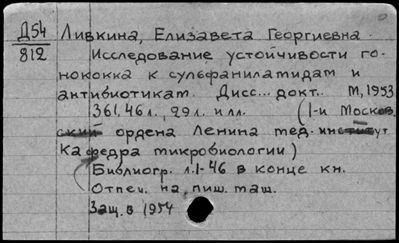 Д54
812
Ливкина, Елизавета Георгиевна.
Исследование устойчивости го-
нококка к сульфаниламидам и
антибиотикам. Дисс... докт. М, 1953
361, 46 л., 29 л. илл. (1-и Москов.
ский ордена Ленина мед. институт
Кафедра микробиологии)
Библиогр. л. 1-46 в конце кн.
Отпеч. на пиш. маш.
Защ. в 1954